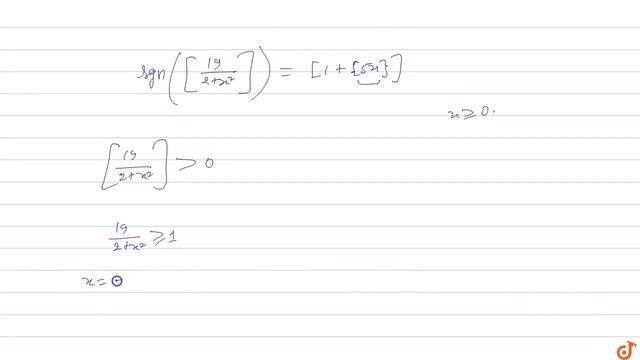 sgn([19/2+x²]) = [1 + {5x}]
x ≥ 0.
[19/2+x²] > 0
19/2+x² ≥ 1
x = 0